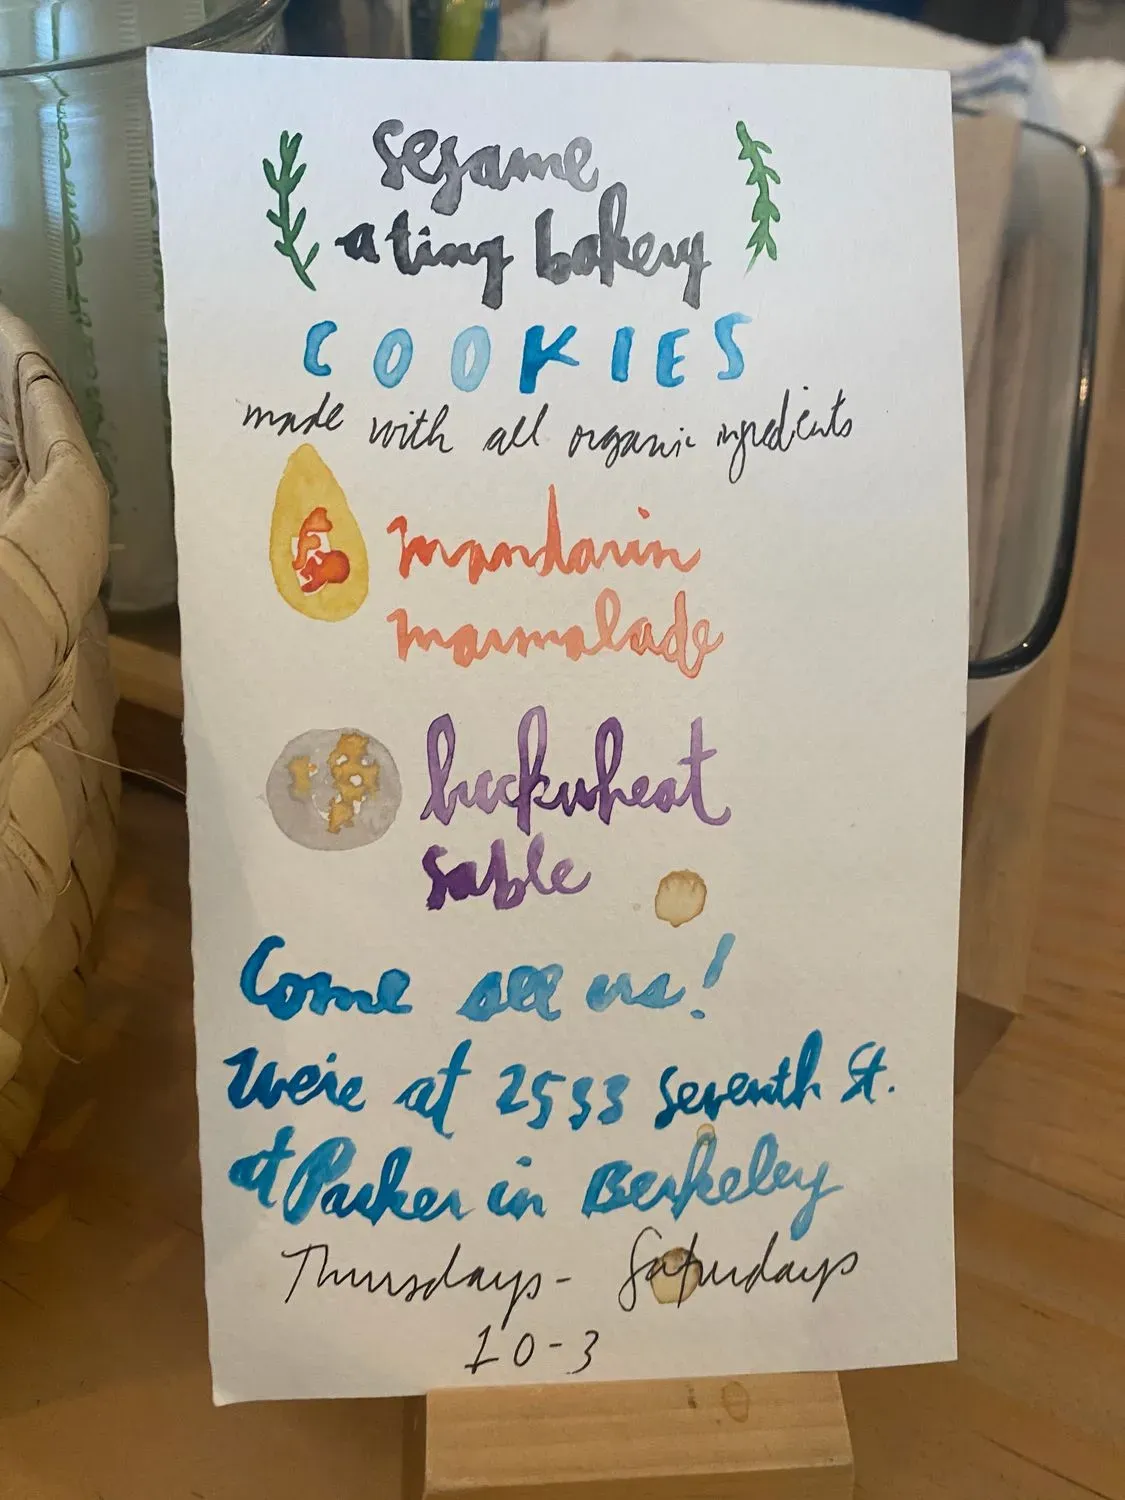 sesame
a tiny bakery
COOKIES
made with all organic ingredients
mandarin
marmalade
buckwheat
sable
Come see us!
We're at 2533 Seventh St.
at Parker in Berkeley
Thursdays - Saturdays
10-3